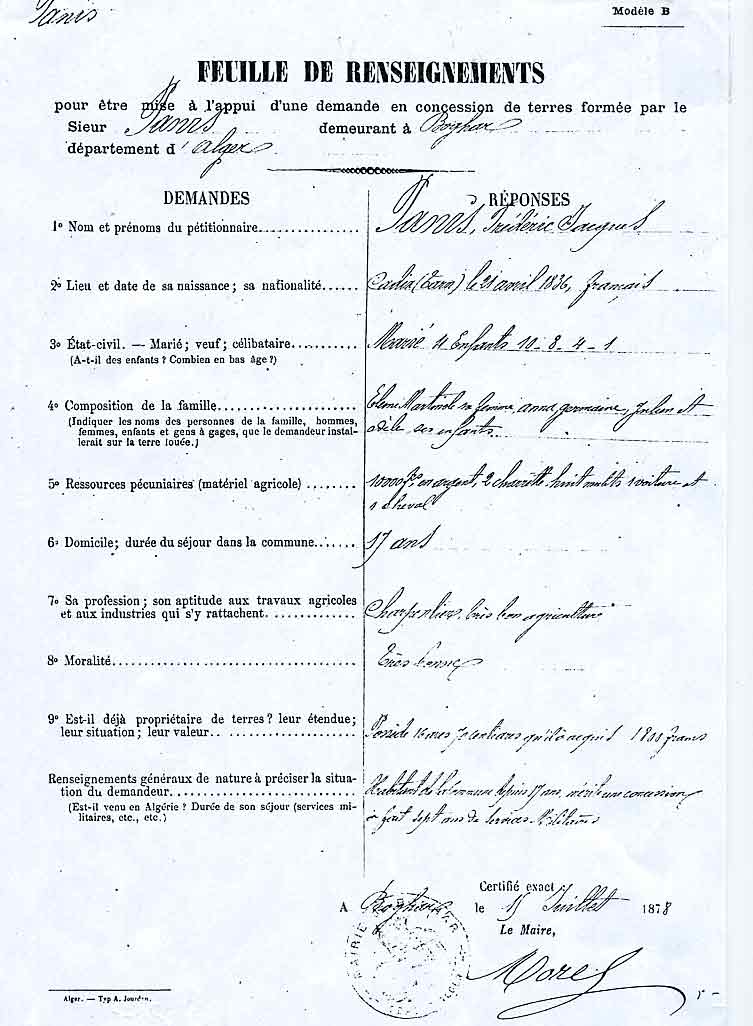 Panis
Modèle B
FEUILLE DE RENSEIGNEMENTS
pour être mise à l'appui d'une demande en concession de terres formée par le
Sieur Panis demeurant à Boghar
département d'Alger
DEMANDES
RÉPONSES
1º Nom et prénoms du pétitionnaire
Panis, Frédéric Jacques
2º Lieu et date de sa naissance ; sa nationalité
Cadix (Tarn) le 21 avril 1836, français
3º État-civil. — Marié ; veuf ; célibataire
(A-t-il des enfants ? Combien en bas âge ?)
Marié 4 Enfants 10 - 8 - 4 - 1
4º Composition de la famille
(Indiquer les noms des personnes de la famille, hommes,
femmes, enfants et gens à gages, que le demandeur instal-
lerait sur la terre louée.)
sa femme, anna, germaine, Julien et
adèle ses enfants
5º Ressources pécuniaires (matériel agricole)
10000 f en argent, 2 charrette huit mulets 1 voiture et
1 cheval
6º Domicile ; durée du séjour dans la commune
17 ans
7º Sa profession ; son aptitude aux travaux agricoles
et aux industries qui s'y rattachent
Charpentier, très bon agriculteur
8º Moralité
Très bonne
9º Est-il déjà propriétaire de terres ? leur étendue ;
leur situation ; leur valeur
Possède 16 ares 70 centiares qu'il a acquis 1800 francs
Renseignements généraux de nature à préciser la situa-
tion du demandeur
(Est-il venu en Algérie ? Durée de son séjour (services mi-
litaires, etc., etc.)
Habitant de la Commune depuis 17 ans, mérite une concession
a fait sept ans de services Militaires
Certifié exact
A Boghar le 15 Juillet 1878
Le Maire,
Morel
Alger. — Typ A. Jourdan.